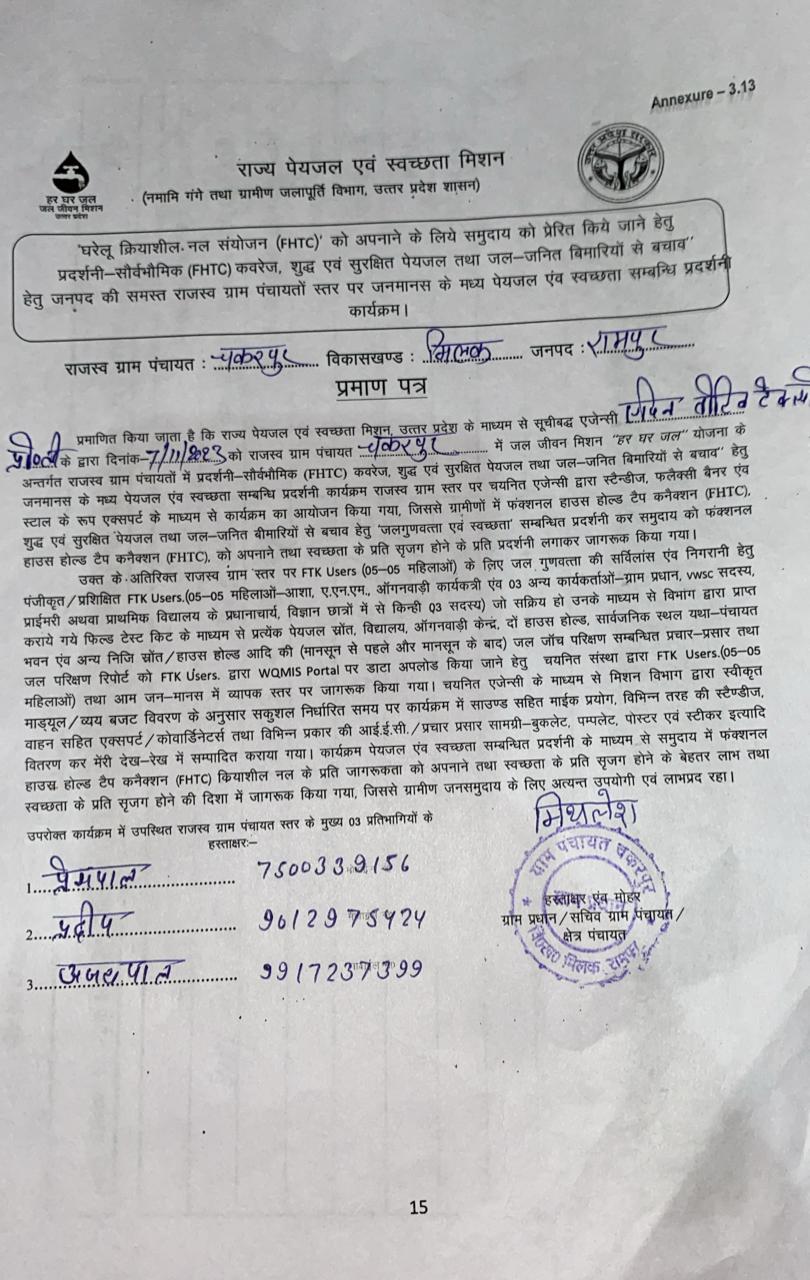 Annexure – 3.13
हर घर जल
जल जीवन मिशन
उत्तर प्रदेश
राज्य पेयजल एवं स्वच्छता मिशन
(नमामि गंगे तथा ग्रामीण जलापूर्ति विभाग, उत्तर प्रदेश शासन)
उत्तर प्रदेश सरकार
'घरेलू क्रियाशील नल संयोजन (FHTC)' को अपनाने के लिये समुदाय को प्रेरित किये जाने हेतु
प्रदर्शनी–सौर्वभौमिक (FHTC) कवरेज, शुद्ध एवं सुरक्षित पेयजल तथा जल–जनित बिमारियों से बचाव"
हेतु जनपद की समस्त राजस्व ग्राम पंचायतों स्तर पर जनमानस के मध्य पेयजल एंव स्वच्छता सम्बन्धि प्रदर्शनी
कार्यक्रम।
राजस्व ग्राम पंचायत : चकरपुर विकासखण्ड : मिलक जनपद : रामपुर
प्रमाण पत्र
प्रमाणित किया जाता है कि राज्य पेयजल एवं स्वच्छता मिशन, उत्तर प्रदेश के माध्यम से सूचीबद्ध एजेन्सी
के द्वारा दिनांक 7/11/2023 को राजस्व ग्राम पंचायत चकरपुर में जल जीवन मिशन "हर घर जल" योजना के
अन्तर्गत राजस्व ग्राम पंचायतों में प्रदर्शनी–सौर्वभौमिक (FHTC) कवरेज, शुद्ध एवं सुरक्षित पेयजल तथा जल–जनित बिमारियों से बचाव" हेतु
जनमानस के मध्य पेयजल एवं स्वच्छता सम्बन्धि प्रदर्शनी कार्यक्रम राजस्व ग्राम स्तर पर चयनित एजेन्सी द्वारा स्टैन्डीज, फलैक्सी बैनर एंव
स्टाल के रूप एक्सपर्ट के माध्यम से कार्यक्रम का आयोजन किया गया, जिससे ग्रामीणों में फंक्शनल हाउस होल्ड टैप कनैक्शन (FHTC),
शुद्ध एवं सुरक्षित पेयजल तथा जल–जनित बीमारियों से बचाव हेतु 'जलगुणवत्ता एवं स्वच्छता' सम्बन्धित प्रदर्शनी कर समुदाय को फंक्शनल
हाउस होल्ड टैप कनैक्शन (FHTC), को अपनाने तथा स्वच्छता के प्रति सृजग होने के प्रति प्रदर्शनी लगाकर जागरूक किया गया।
उक्त के अतिरिक्त राजस्व ग्राम स्तर पर FTK Users (05–05 महिलाओं) के लिए जल गुणवत्ता की सर्विलांस एंव निगरानी हेतु
पंजीकृत/प्रशिक्षित FTK Users.(05–05 महिलाओं–आशा, ए.एन.एम., ऑगनवाड़ी कार्यकत्री एंव 03 अन्य कार्यकर्ताओं–ग्राम प्रधान, vwsc सदस्य,
प्राईमरी अथवा प्राथमिक विद्यालय के प्रधानाचार्य, विज्ञान छात्रों में से किन्ही 03 सदस्य) जो सक्रिय हो उनके माध्यम से विभाग द्वारा प्राप्त
कराये गये फिल्ड टेस्ट किट के माध्यम से प्रत्येंक पेयजल स्रोंत, विद्यालय, ऑगनवाड़ी केन्द्र, दों हाउस होल्ड, सार्वजनिक स्थल यथा–पंचायत
भवन एंव अन्य निजि स्रोंत/हाउस होल्ड आदि की (मानसून से पहले और मानसून के बाद) जल जाँच परिक्षण सम्बन्धित प्रचार–प्रसार तथा
जल परिक्षण रिपोर्ट को FTK Users. द्वारा WQMIS Portal पर डाटा अपलोड किया जाने हेतु चयनित संस्था द्वारा FTK Users.(05–05
महिलाओं) तथा आम जन–मानस में व्यापक स्तर पर जागरूक किया गया। चयनित एजेन्सी के माध्यम से मिशन विभाग द्वारा स्वीकृत
माड्यूल/व्यय बजट विवरण के अनुसार सकुशल निर्धारित समय पर कार्यक्रम में साउण्ड सहित माईक प्रयोग, विभिन्न तरह की स्टैण्डीज,
वाहन सहित एक्सपर्ट/कोवार्डिनेटर्स तथा विभिन्न प्रकार की आई.ई.सी./प्रचार प्रसार सामग्री–बुकलेट, पम्पलेट, पोस्टर एवं स्टीकर इत्यादि
वितरण कर मेंरी देख–रेख में सम्पादित कराया गया। कार्यक्रम पेयजल एंव स्वच्छता सम्बन्धित प्रदर्शनी के माध्यम से समुदाय में फंक्शनल
हाउस होल्ड टैप कनैक्शन (FHTC) क्रियाशील नल के प्रति जागरूकता को अपनाने तथा स्वच्छता के प्रति सृजग होने के बेहतर लाभ तथा
स्वच्छता के प्रति सृजग होने की दिशा में जागरूक किया गया, जिससे ग्रामीण जनसमुदाय के लिए अत्यन्त उपयोगी एवं लाभप्रद रहा।
उपरोक्त कार्यक्रम में उपस्थित राजस्व ग्राम पंचायत स्तर के मुख्य 03 प्रतिभागियों के
हस्ताक्षरः–
1. प्रेमपाल 7500339156
2. प्रदीप 9612975424
3. अजयपाल 9917237399
मिथलेश
ग्राम पंचायत चकरपुर
मिलक रामपुर
हस्ताक्षर एंव मोहर
ग्राम प्रधान/सचिव ग्राम पंचायत/
क्षेत्र पंचायत
15